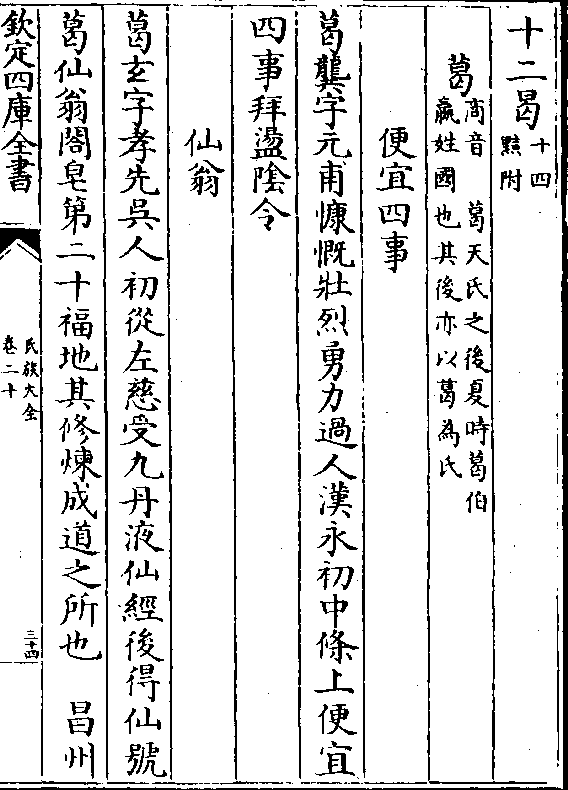 十二曷十四黠附
葛商音　葛天氏之後夏時葛伯嬴姓國也其後亦以葛為氏
便宜四事
葛龔字元甫慷慨壯烈勇力過人漢永初中條上便宜
四事拜盪陰令
仙翁
葛玄字孝先吳人初從左慈受九丹液仙經後得仙號
葛仙翁閤皂第二十福地其修煉成道之所也　昌州
欽定四庫全書
氏族大全
卷二十
三十四